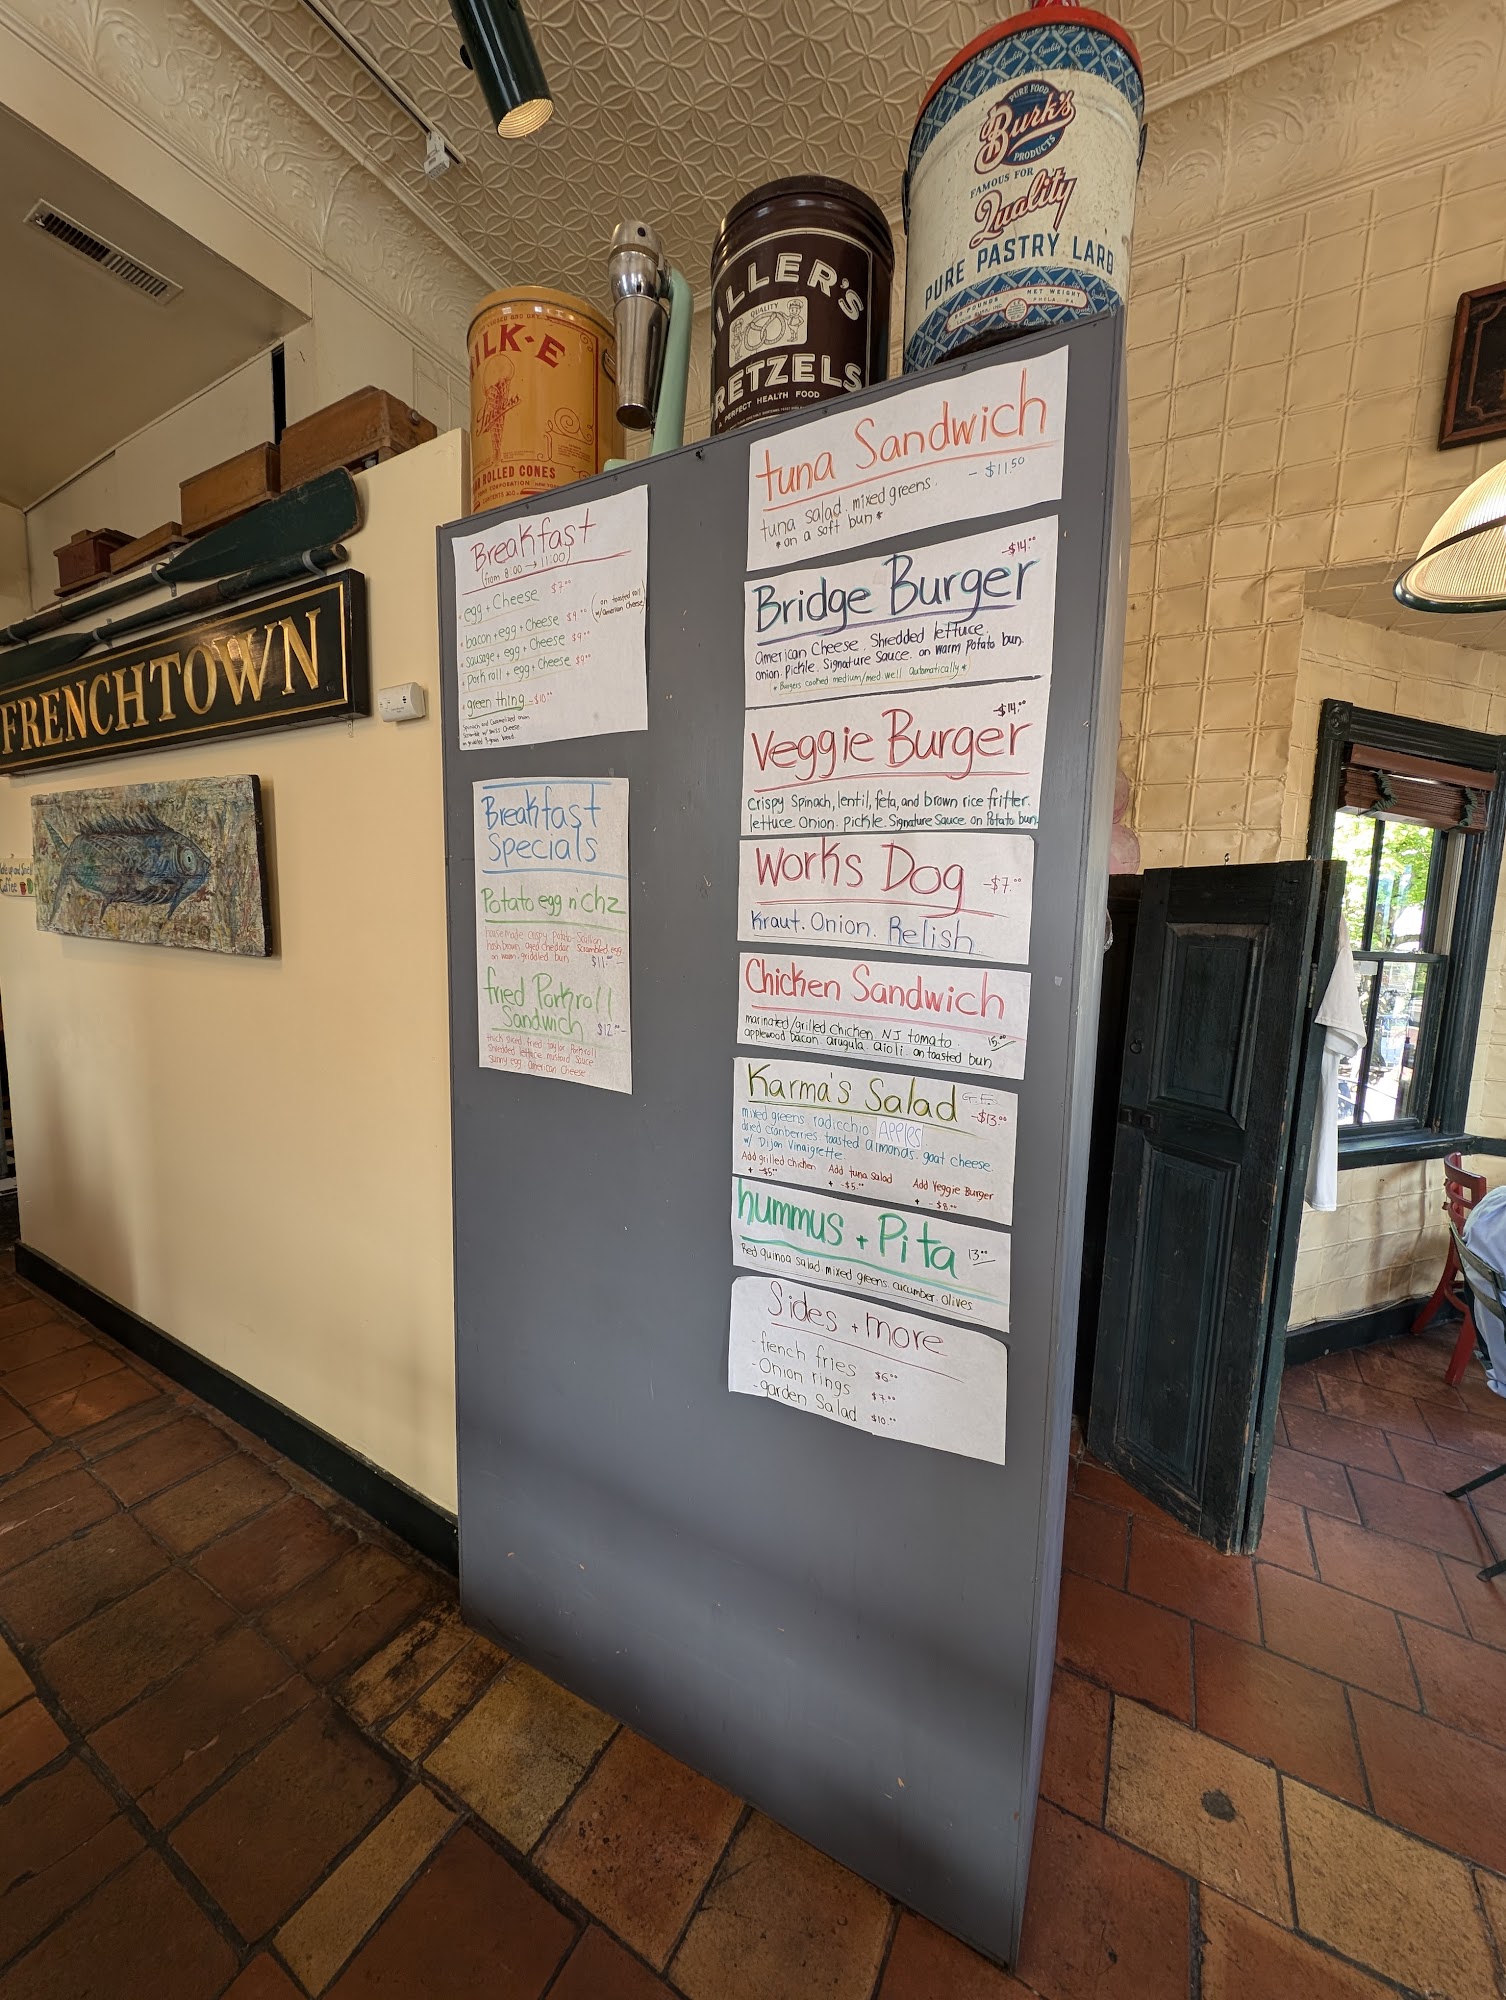 Burk's
PURE FOOD
PRODUCTS
FAMOUS FOR
Quality
PURE PASTRY LARD
50 POUNDS
NET WEIGHT
PHILA., PA.
ILLER'S
QUALITY
RETZELS
A PERFECT HEALTH FOOD
ILK-E
ROLLED CONES
FRENCHTOWN
Coffee
Breakfast
(from 8:00 → 11:00)
• egg + Cheese $7.00
• bacon + egg + Cheese $9.00 (on toasted roll
w/American Cheese)
• sausage + egg + Cheese $9.00
• Pork roll + egg + Cheese $9.00
• green thing - $10.00
Spinach and Caramelized onion
Scramble w/ Swiss Cheese
Breakfast
Specials
Potato egg n' Chz
housemade crispy Potato-Scallion
hash brown. aged cheddar. Scrambled egg
on warm griddled bun $11.00
fried Porkroll
Sandwich $12.00
thick sliced fried taylor Porkroll
shredded lettuce mustard sauce
sunny egg. american Cheese
tuna Sandwich
- $11.50
tuna salad. mixed greens.
*on a soft bun*
-$14.00
Bridge Burger
American Cheese. Shredded lettuce.
onion. pickle. Signature Sauce. on warm Potato bun.
*Burgers cooked medium/med well automatically*
-$14.00
Veggie Burger
Crispy Spinach, lentil, feta, and brown rice fritter.
lettuce. Onion. pickle. Signature Sauce on Potato bun.
Works Dog -$7.00
Kraut. Onion. Relish
Chicken Sandwich
marinated/grilled chicken NJ tomato
applewood bacon. arugula. aioli on toasted bun
Karma's Salad G.F.
-$13.00
mixed greens radicchio. APPLES.
dried cranberries. toasted almonds. goat cheese.
w/ Dijon Vinaigrette.
Add grilled chicken Add tuna salad Add Veggie Burger
+ -$5.00 + -$5.00 + -$8.00
hummus + Pita 13.00
Red quinoa salad. mixed greens. cucumber. olives
Sides + more
- french fries $6.00
- Onion rings $7.00
- garden Salad $10.00